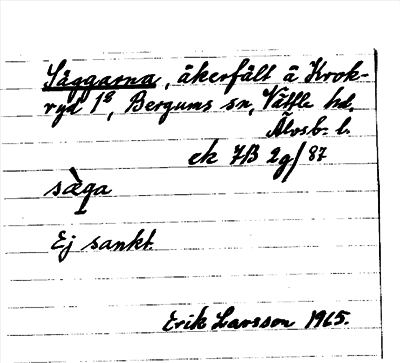 Säggarna, åkerfält å Krok-
ryd 1ᵉ, Bergums sn, Vättle hd,
Älvsb. l.
ek 7B 2g/87
sæ̀ga
Ej sankt.
Erik Larsson 1965.